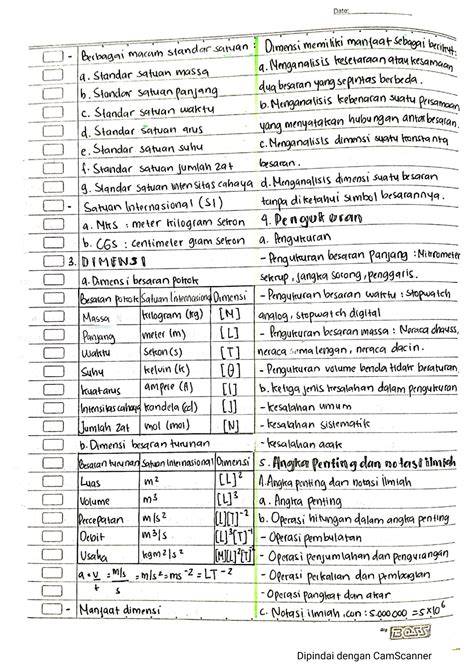 Date:
- Berbagai macam standar satuan :
a. Standar satuan massa
b. Standar satuan panjang
c. Standar satuan waktu
d. Standar satuan arus
e. Standar satuan suhu
f. Standar satuan jumlah zat
g. Standar satuan intensitas cahaya
- Satuan Internasional (SI)
a. MKS : meter kilogram sekon
b. CGS : centimeter gram sekon
3. DIMENSI
a. Dimensi besaran pokok
Besaran pokok Satuan Internasional Dimensi
Massa kilogram (kg) [M]
Panjang meter (m) [L]
Waktu Sekon (s) [T]
Suhu kelvin (K) [θ]
Kuat arus ampere (A) [I]
Intensitas cahaya kandela (cd) [J]
Jumlah zat mol (mol) [N]
b. Dimensi besaran turunan
Besaran turunan Satuan Internasional Dimensi
Luas m² [L]²
Volume m³ [L]³
Percepatan m/s² [L][T]⁻²
Debit m³/s [L]³[T]⁻¹
Usaha kgm²/s² [M][L]²[T]⁻²
a = v/t = m/s / s = m/s² = ms⁻² = LT⁻²
- Manfaat dimensi
Dimensi memiliki manfaat sebagai berikut:
a. Menganalisis kesetaraan atau kesamaan
dua besaran yang sepintas berbeda.
b. Menganalisis kebenaran suatu persamaan
yang menyatakan hubungan antar besaran.
c. Menganalisis dimensi suatu konstanta
besaran.
d. Menganalisis dimensi suatu besaran
tanpa diketahui simbol besarannya.
4. Pengukuran
a. Pengukuran
- Pengukuran besaran panjang : Mikrometer
sekrup, jangka sorong, penggaris.
- Pengukuran besaran waktu : Stopwatch
analog, stopwatch digital
- Pengukuran besaran massa : Neraca ohauss,
neraca sama lengan, neraca dacin.
- Pengukuran volume benda tidak beraturan
b. ketiga jenis kesalahan dalam pengukuran
- kesalahan umum
- kesalahan sistematik
- kesalahan acak
5. Angka Penting dan notasi ilmiah
A. Angka penting dan notasi ilmiah
a. Angka penting
b. Operasi hitungan dalam angka penting
- Operasi pembulatan
- Operasi penjumlahan dan pengurangan
- Operasi perkalian dan pembagian
- Operasi pangkat dan akar
c. Notasi ilmiah, con : 5.000.000 = 5x10⁶
BOSS
Dipindai dengan CamScanner